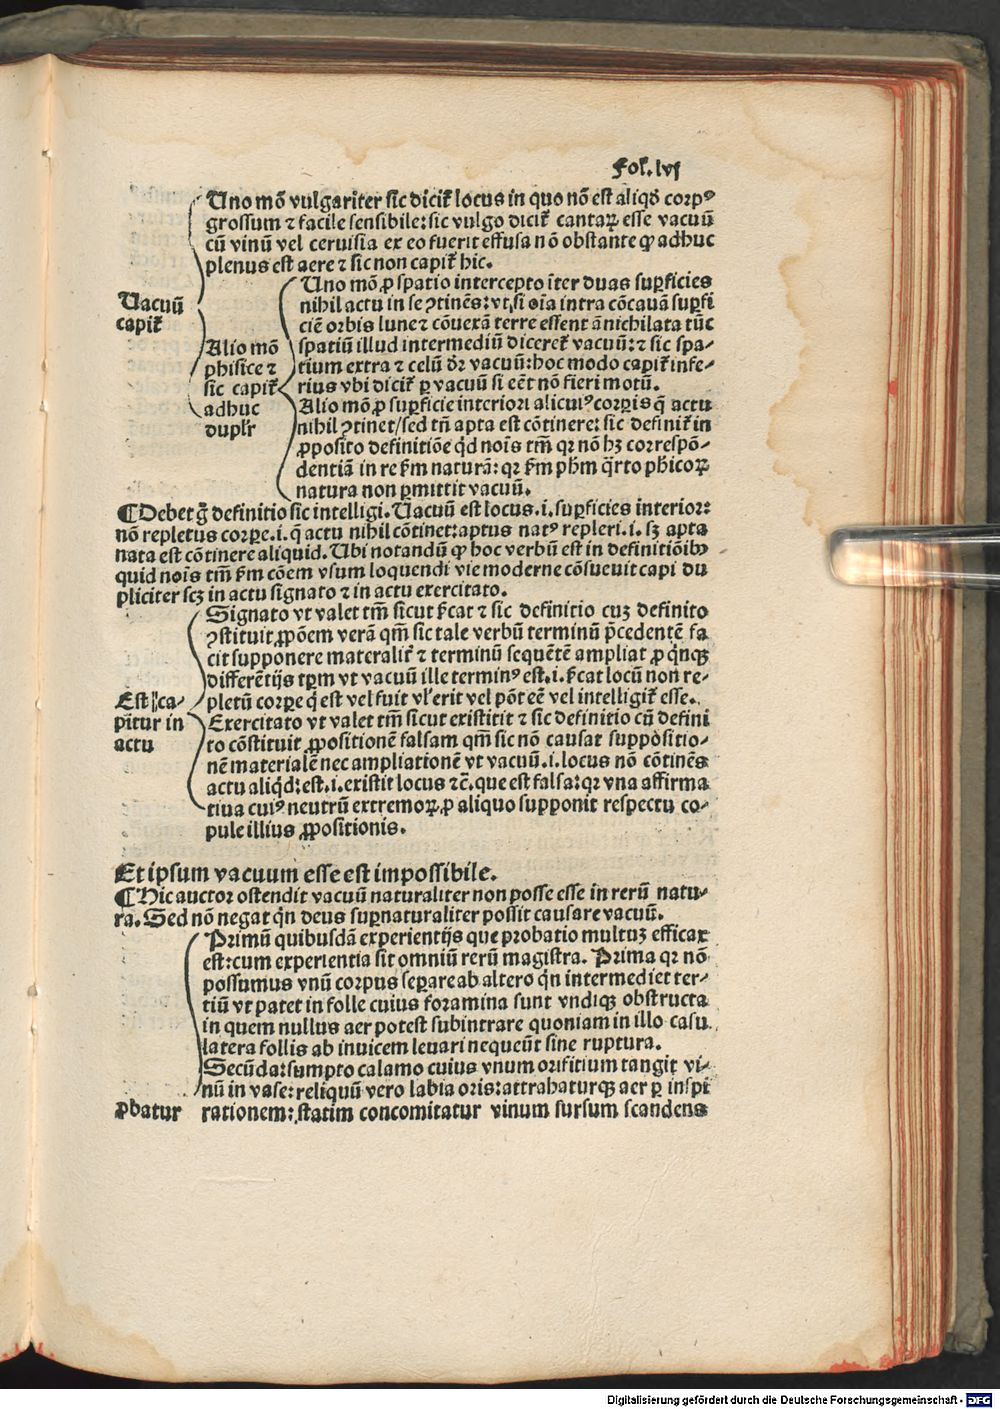 Fol. lvj
Uno mō vulgariter sic dicit̄ locus in quo nō est aliqḋ corpꝰ
grossum ⁊ facile sensibile: sic vulgo dicit̄ cantaꝝ esse vacuū
cū vinū vel ceruisia ex eo fuerit effusa nō obstante ꝙ adhuc
plenus est aere ⁊ sic non capit̄ hic.
Vacuū
capit̄
Alio mō
phisice ⁊
sic capit̄
adhuc
duplr̄
Uno mō ꝓ spatio intercepto īter duas suꝑficies
nihil actu in se ꝯtinēs: vt, si oīa intra cōcauā suꝑfi
ciē orbis lune ⁊ cōuexā terre essent ānichilata tūc
spatiū illud intermediū diceret̄ vacuū: ⁊ sic spa-
tium extra ⁊ celū dr̄ vacuū: hoc modo capit̄ infe-
rius vbi dicit̄ ꝑ vacuū si eēt nō fieri motū.
Alio mō ꝓ suꝑficie interiori alicuiꝰ corꝑis q̄ actu
nihil ꝯtinet/ sed tn̄ apta est cōtinere: sic definit̄ in
ꝓposito definitiōe qḋ noīs tm̄ qꝛ nō hꝫ correspō-
dentiā in re ẜm naturā: qꝛ ẜm phm̄ q̄rto phicoꝝ
natura non ꝑmittit vacuū.
¶ Debet ḡ definitio sic intelligi. Vacuū est locus .i. suꝑficies interior:
nō repletus corꝑe .i. q̄ actu nihil cōtinet: aptus natꝰ repleri .i. sꝫ apta
nata est cōtinere aliquid. Ubi notandū ꝙ hoc verbū est in definitiōibꝰ
quid noīs tm̄ ẜm cōem vsum loquendi vie moderne cōsueuit capi du
pliciter scꝫ in actu signato ⁊ in actu exercitato.
Est || ca-
pit̄ur in
actu
Signato vt valet tm̄ sicut ẜcat ⁊ sic definitio cuꝫ definito
ꝯstituit ꝓpōem verā qm̄ sic tale verbū terminū p̄cedentē fa
cit supponere materalit̄ ⁊ terminū sequētē ampliat ꝓ qn̄qꝫ
differētijs tꝑm vt vacuū ille terminꝰ est .i. ẜcat locū non re-
pletū corꝑe q̇ est vel fuit vl̓ erit vel pōt eē vel intelligit̄ esse.
Exercitato vt valet tm̄ sicut existitit ⁊ sic definitio cū defini
to cōstituit ꝓpositionē falsam qm̄ sic nō causat suppositio-
nē materialē nec ampliationē vt vacuū .i. locus nō cōtinēs
actu aliqḋ: est .i. existit locus ⁊c̄. que est falsa: qꝛ vna affirma
tiua cuiꝰ neutrū extremoꝝ ꝓ aliquo supponit respectu co-
pule illius ꝓpositionis.
Et ipsum vacuum esse est impossibile.
¶ Hic auctor ostendit vacuū naturaliter non posse esse in rerū natu-
ra. Sed nō negat qn̄ deus suꝑnaturaliter possit causare vacuū.
Primū quibusdā experientijs que probatio multuꝫ efficax
est: cum experientia sit omniū rerū magistra. Prima qꝛ nō
possumus vnū corpus separe ab altero qn̄ intermediet ter-
tiū vt patet in folle cuius foramina sunt vndiqꝫ obstructa
in quem nullus aer potest subintrare quoniam in illo casu
latera follis ab inuicem leuari nequeūt sine ruptura.
Secūda: sumpto calamo cuius vnum orifitium tangit vi-
nū in vase: reliquū vero labia oris: attrahaturqꝫ aer ꝑ inspi
ꝓbatur rationem: statim concomitatur vinum sursum scandens
Digitalisierung gefördert durch die Deutsche Forschungsgemeinschaft - DFG